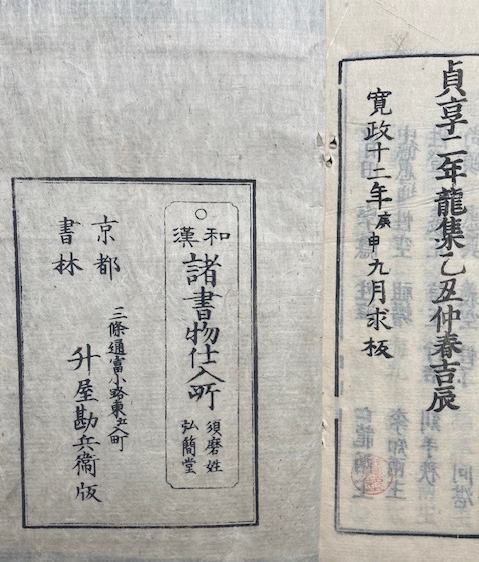 貞享二年龍集乙丑仲春吉辰
寛政十二年庚申九月求板
和漢
諸書物仕入所
須磨姓
弘簡堂
京都
書林
三條通富小路東エ入町
升屋勘兵衞版